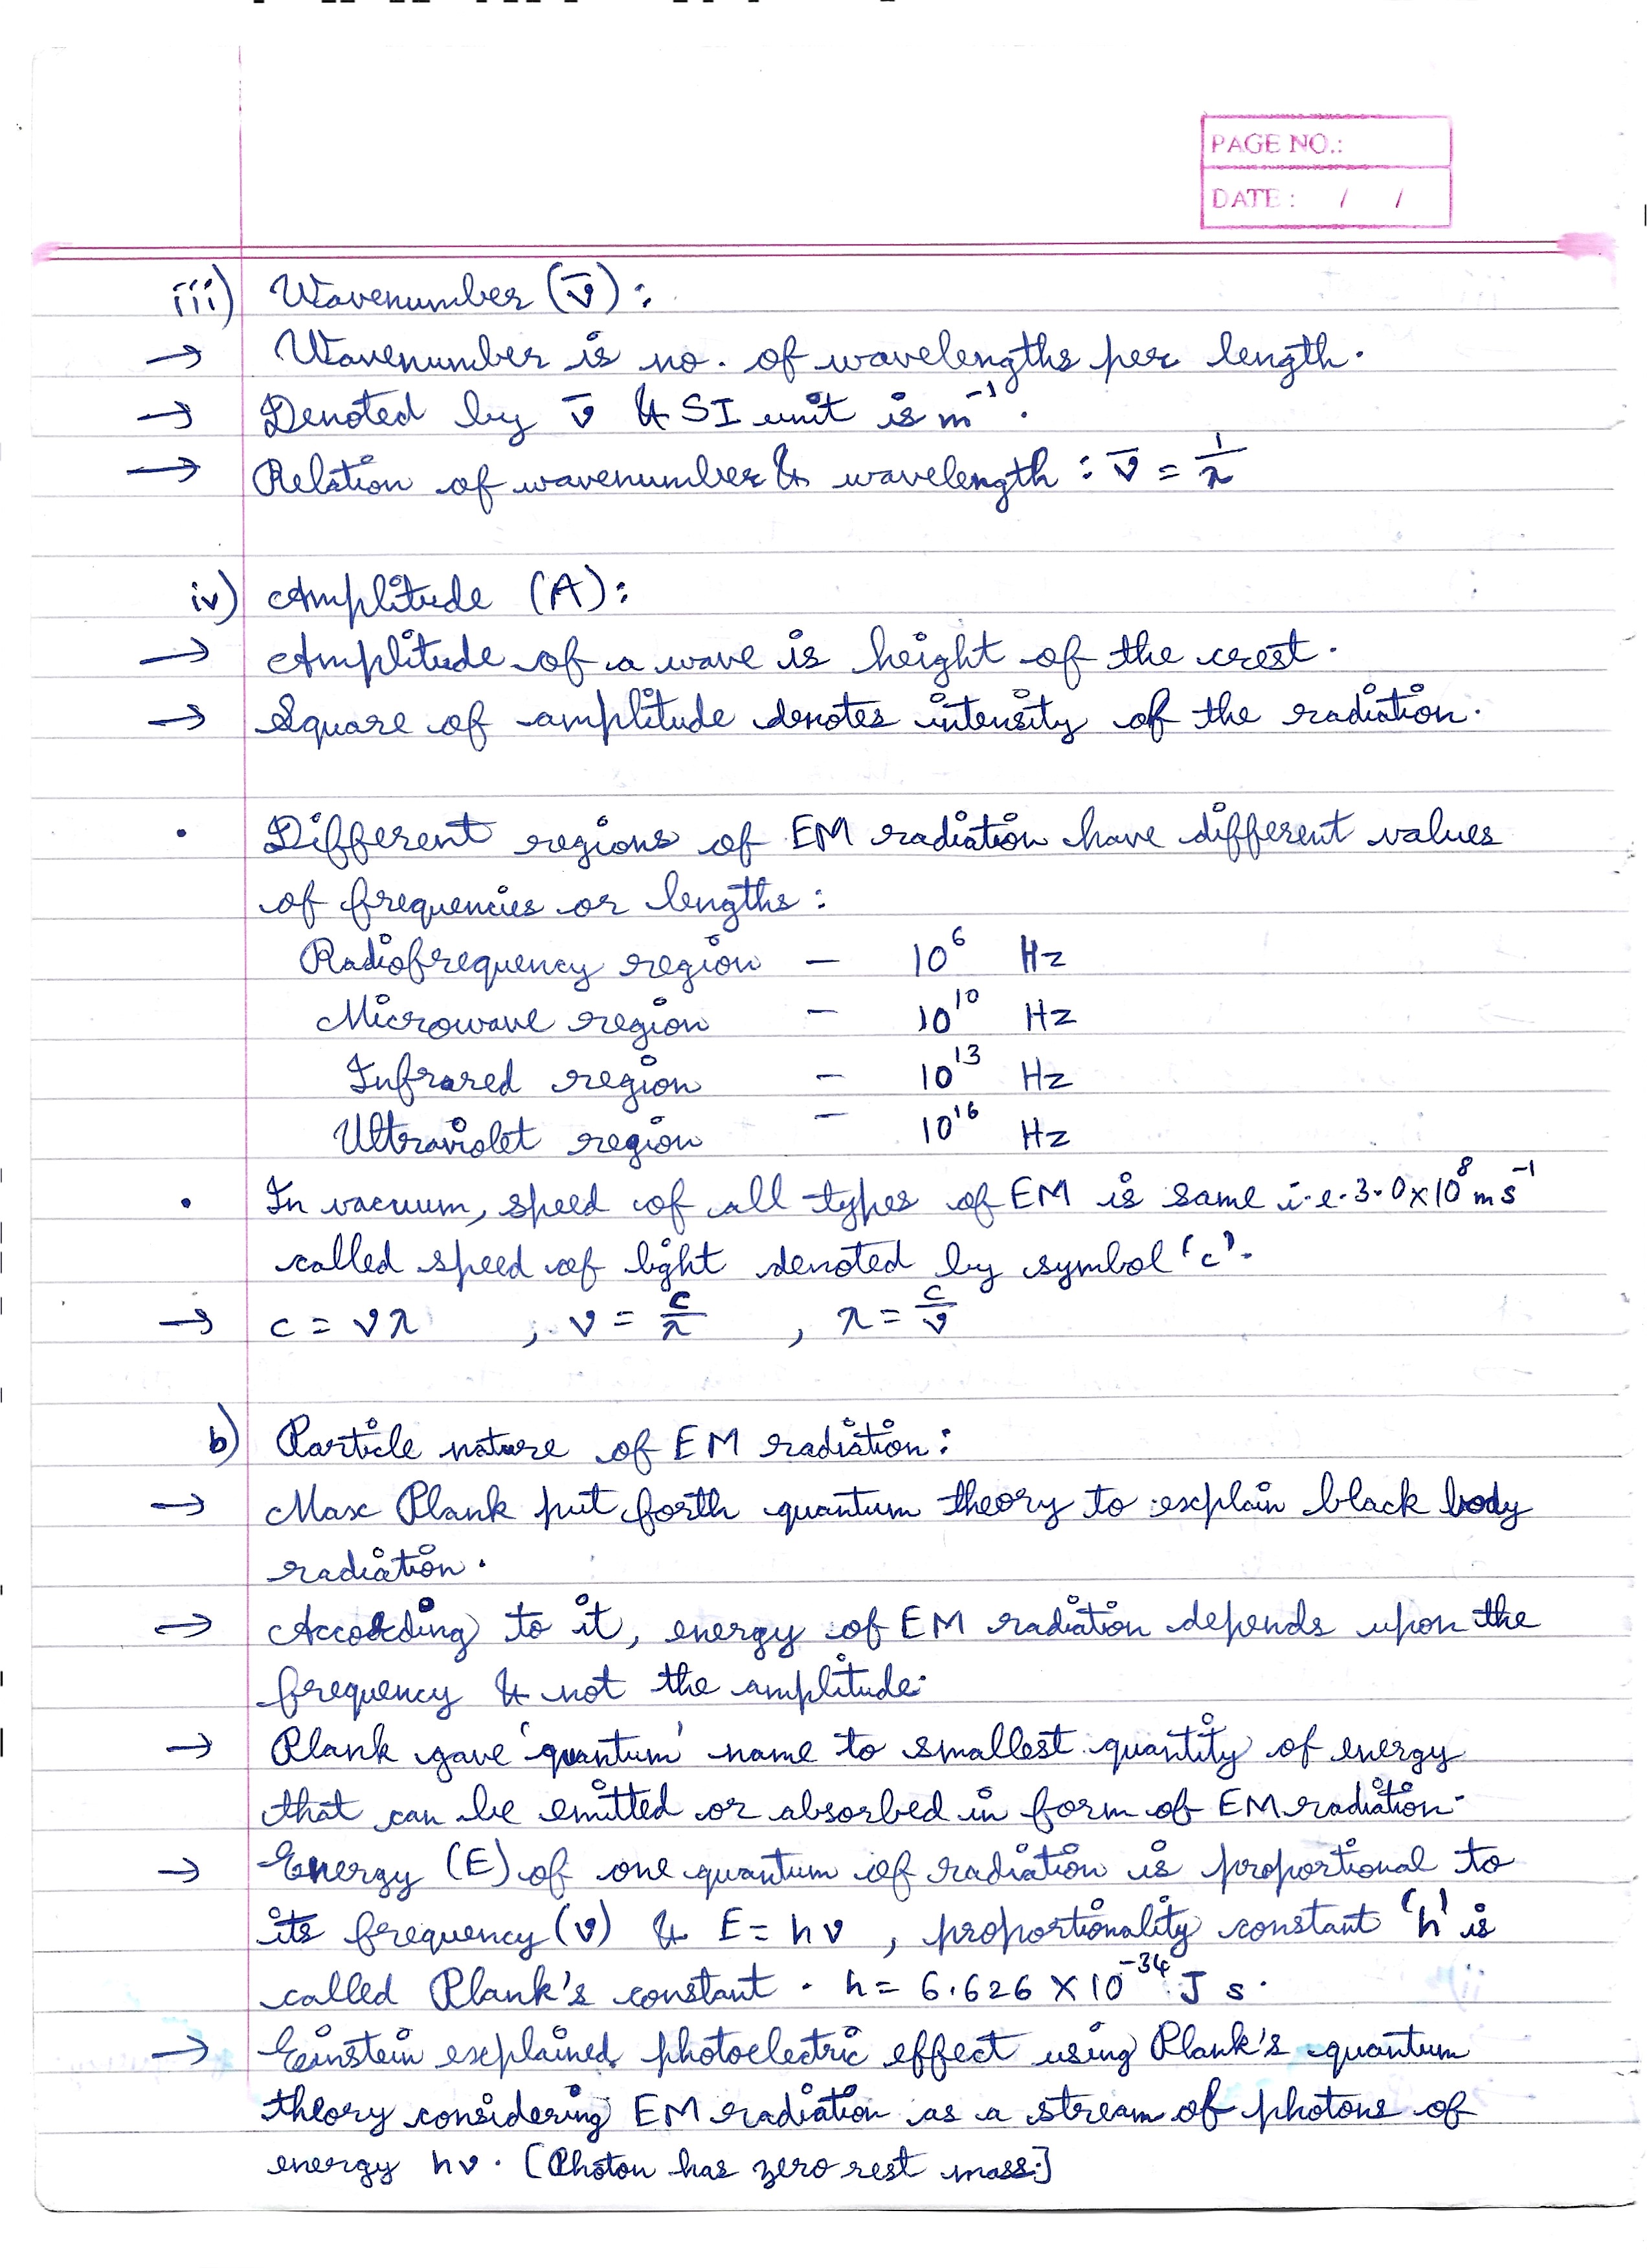 PAGE NO.:
DATE : / /
iii) Wavenumber (ν̅) :
→ Wavenumber is no. of wavelengths per length.
→ Denoted by ν̅ & SI unit is m⁻¹.
→ Relation of wavenumber & wavelength : ν̅ = 1/λ
iv) Amplitude (A) :
→ Amplitude of a wave is height of the crest.
→ Square of amplitude denotes intensity of the radiation.
• Different regions of EM radiation have different values
of frequencies or lengths :
Radiofrequency region – 10⁶ Hz
Microwave region – 10¹⁰ Hz
Infrared region – 10¹³ Hz
Ultraviolet region – 10¹⁶ Hz
• In vacuum, speed of all types of EM is same i.e. 3.0×10⁸ ms⁻¹
called speed of light denoted by symbol 'c'.
→ c = νλ , ν = c/λ , λ = c/ν
b) Particle nature of EM radiation :
→ Max Plank put forth quantum theory to explain black body
radiation.
→ According to it, energy of EM radiation depends upon the
frequency & not the amplitude.
→ Plank gave 'quantum' name to smallest quantity of energy
that can be emitted or absorbed in form of EM radiation.
→ Energy (E) of one quantum of radiation is proportional to
its frequency (ν) & E = hν , proportionality constant 'h' is
called Plank's constant . h = 6.626 × 10⁻³⁴ J s.
→ Einstein explained photoelectric effect using Plank's quantum
theory considering EM radiation as a stream of photons of
energy hν. [Photon has zero rest mass.]